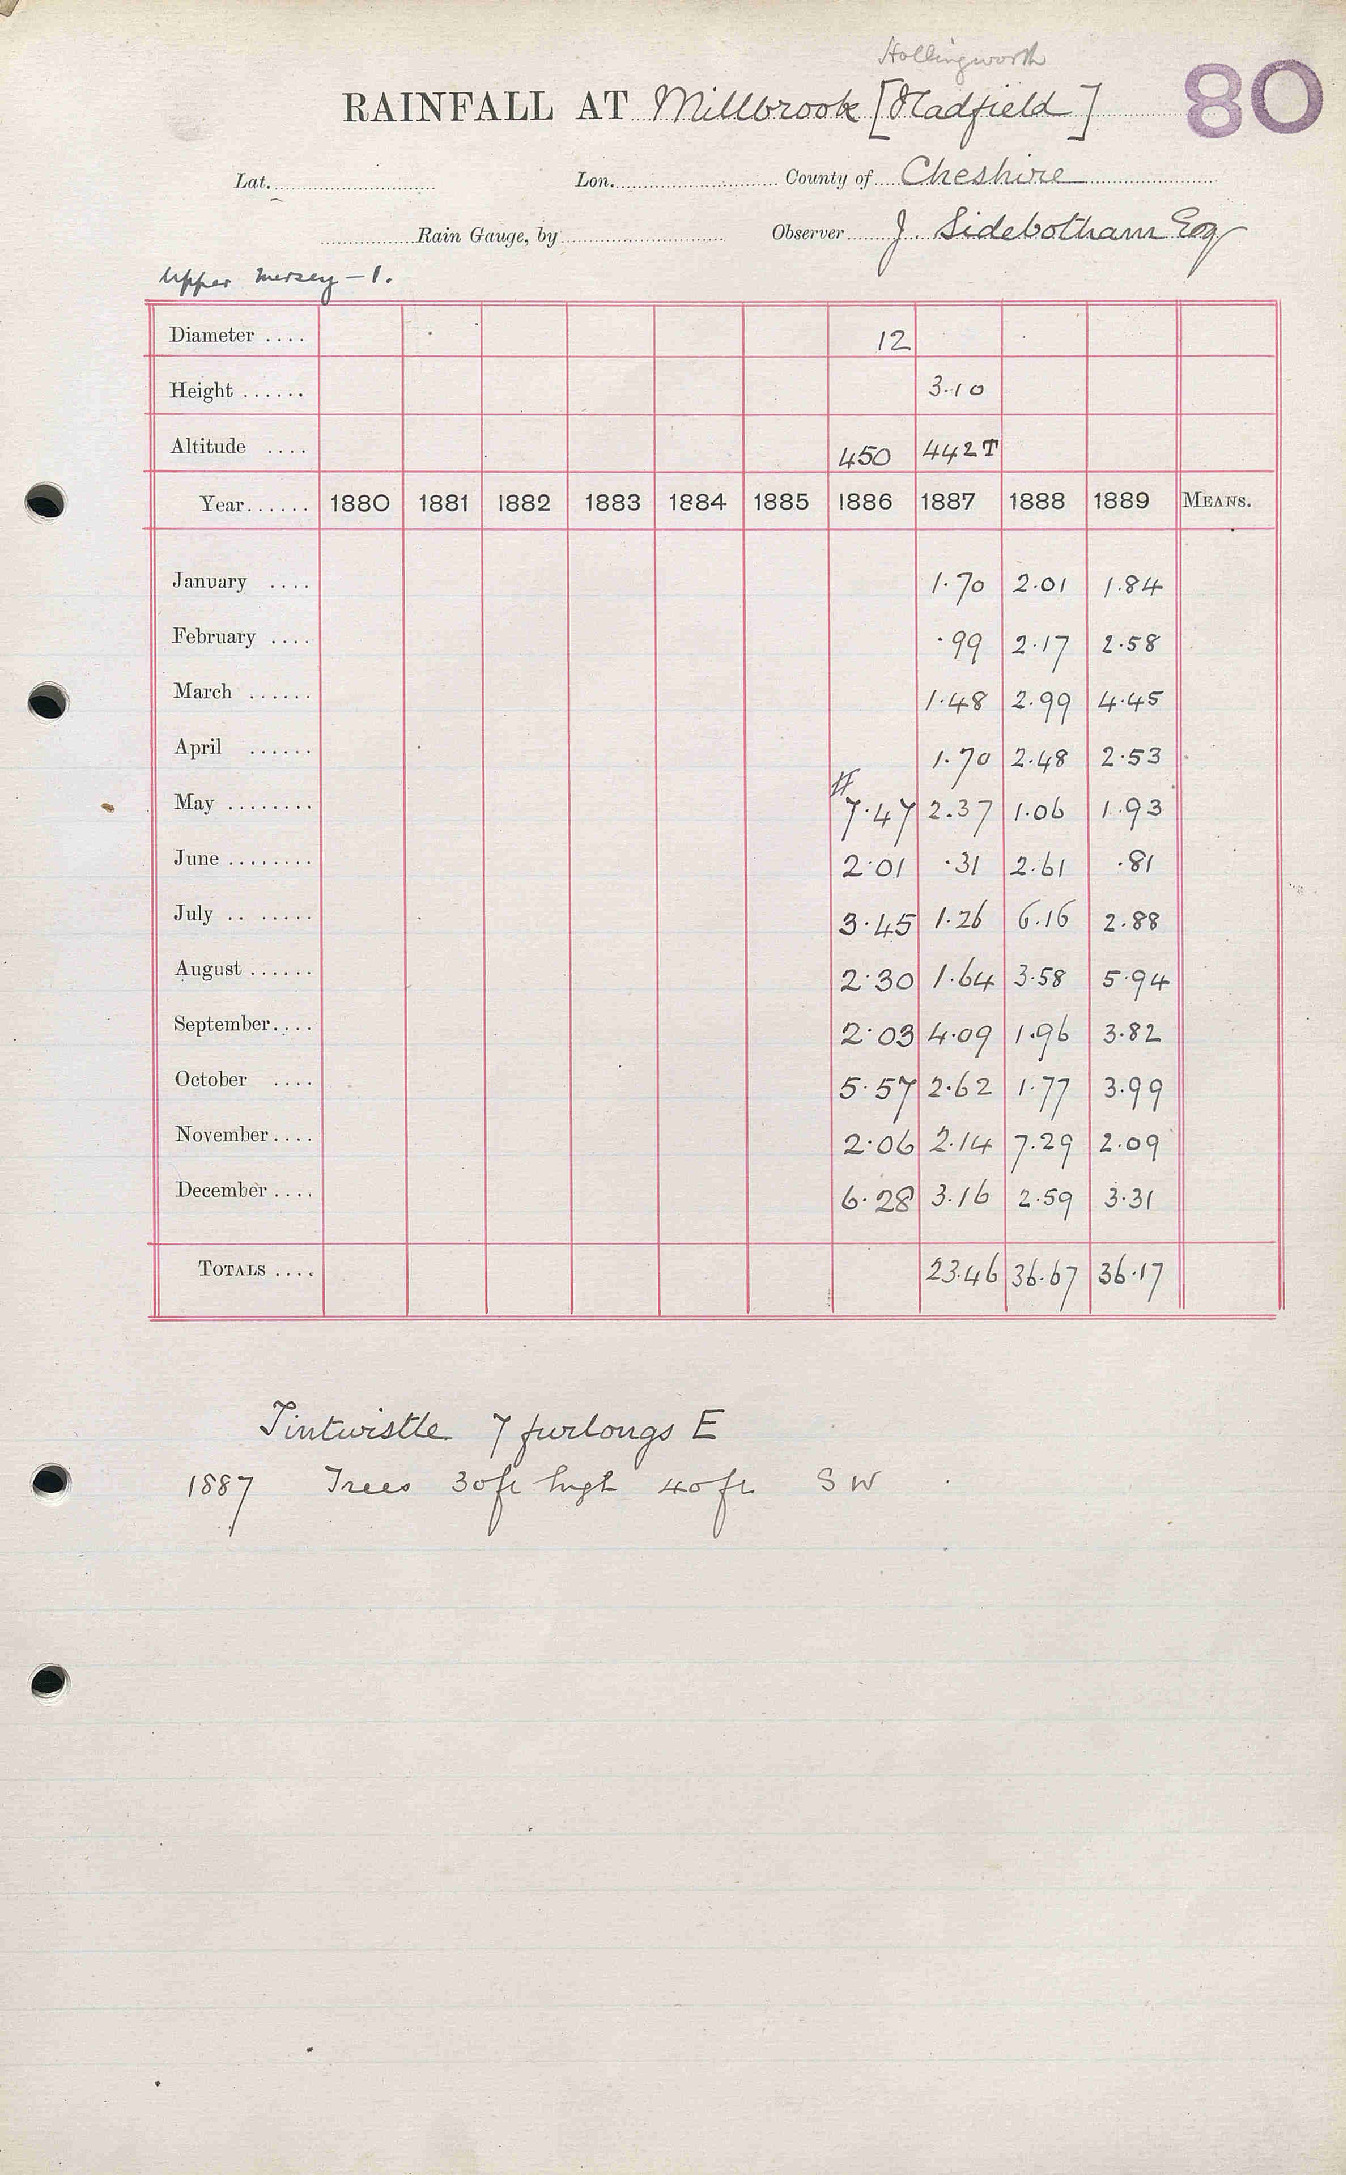 Hollingworth
RAINFALL AT Millbrook [Hadfield] 80
Lat. Lon. County of Cheshire
Rain Gauge, by Observer J. Sidebotham Esq
Upper Mersey – 1.
Diameter .... 12
Height ...... 3.10
Altitude .... 450 442T
Year...... 1880 1881 1882 1883 1884 1885 1886 1887 1888 1889 MEANS.
January .... 1.70 2.01 1.84
February .... .99 2.17 2.58
March ...... 1.48 2.99 4.45
April ...... 1.70 2.48 2.53
May ........ # 7.47 2.37 1.06 1.93
June ........ 2.01 .31 2.61 .81
July .. ..... 3.45 1.26 6.16 2.88
August ...... 2.30 1.64 3.58 5.94
September.... 2.03 4.09 1.96 3.82
October .... 5.57 2.62 1.77 3.99
November.... 2.06 2.14 7.29 2.09
December .... 6.28 3.16 2.59 3.31
TOTALS .... 23.46 36.67 36.17
Tintwistle 7 furlongs E
1887 Trees 30ft high 40ft SW